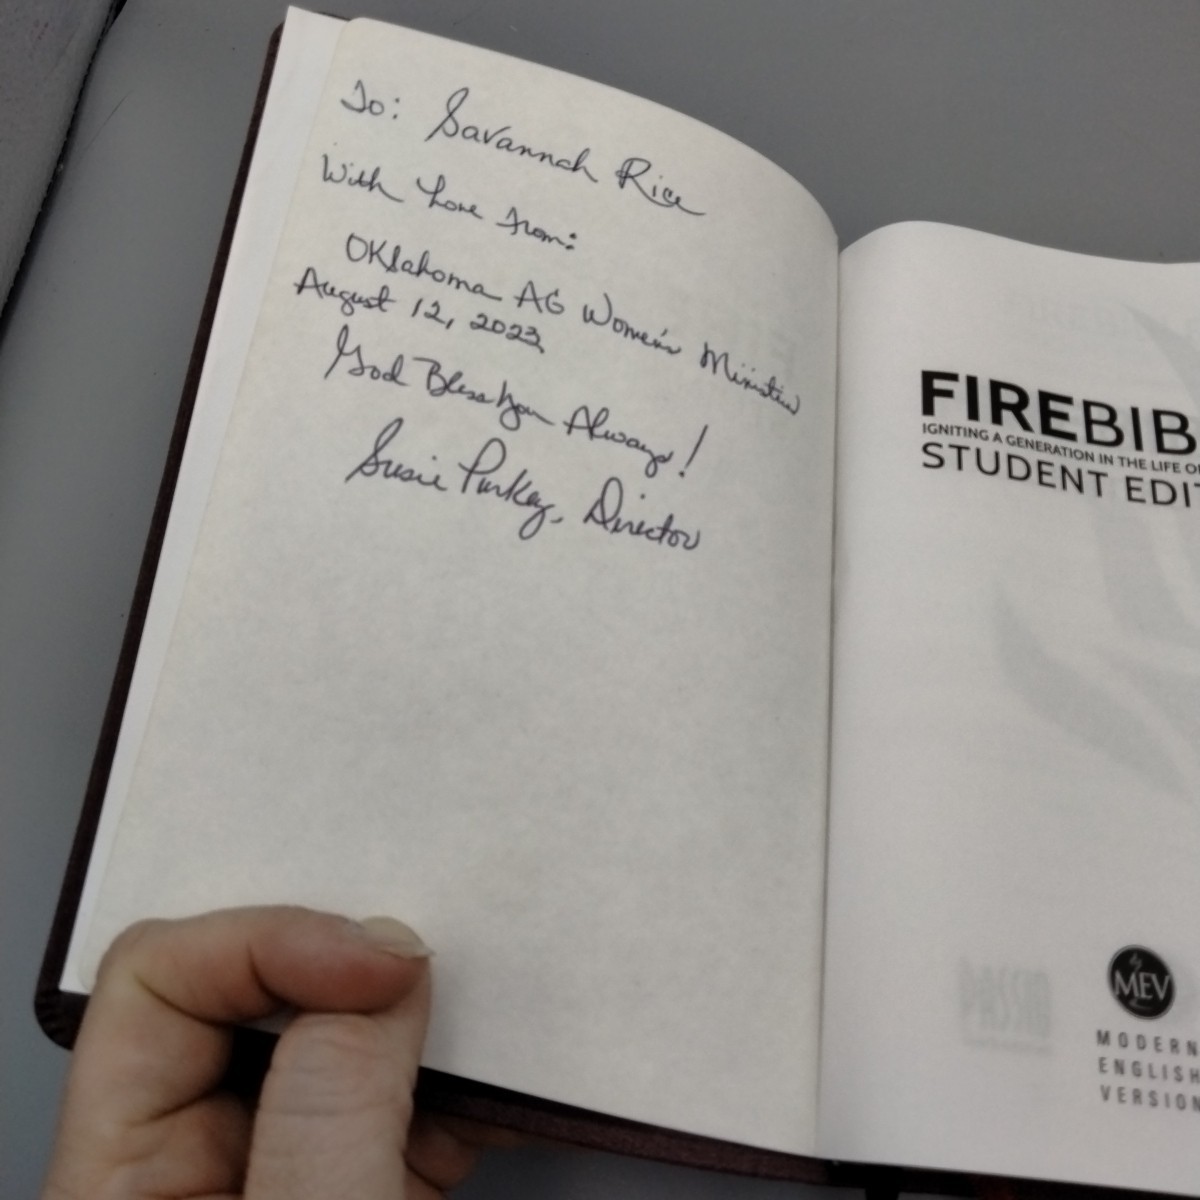 To: Savannah Rice
With Love from:
Oklahoma AG Women's Ministries
August 12, 2023
God Bless You Always!
Susie Purkey, Director
FIREBIB
IGNITING A GENERATION IN THE LIFE O
STUDENT EDIT
MEV
MODERN
ENGLISH
VERSION